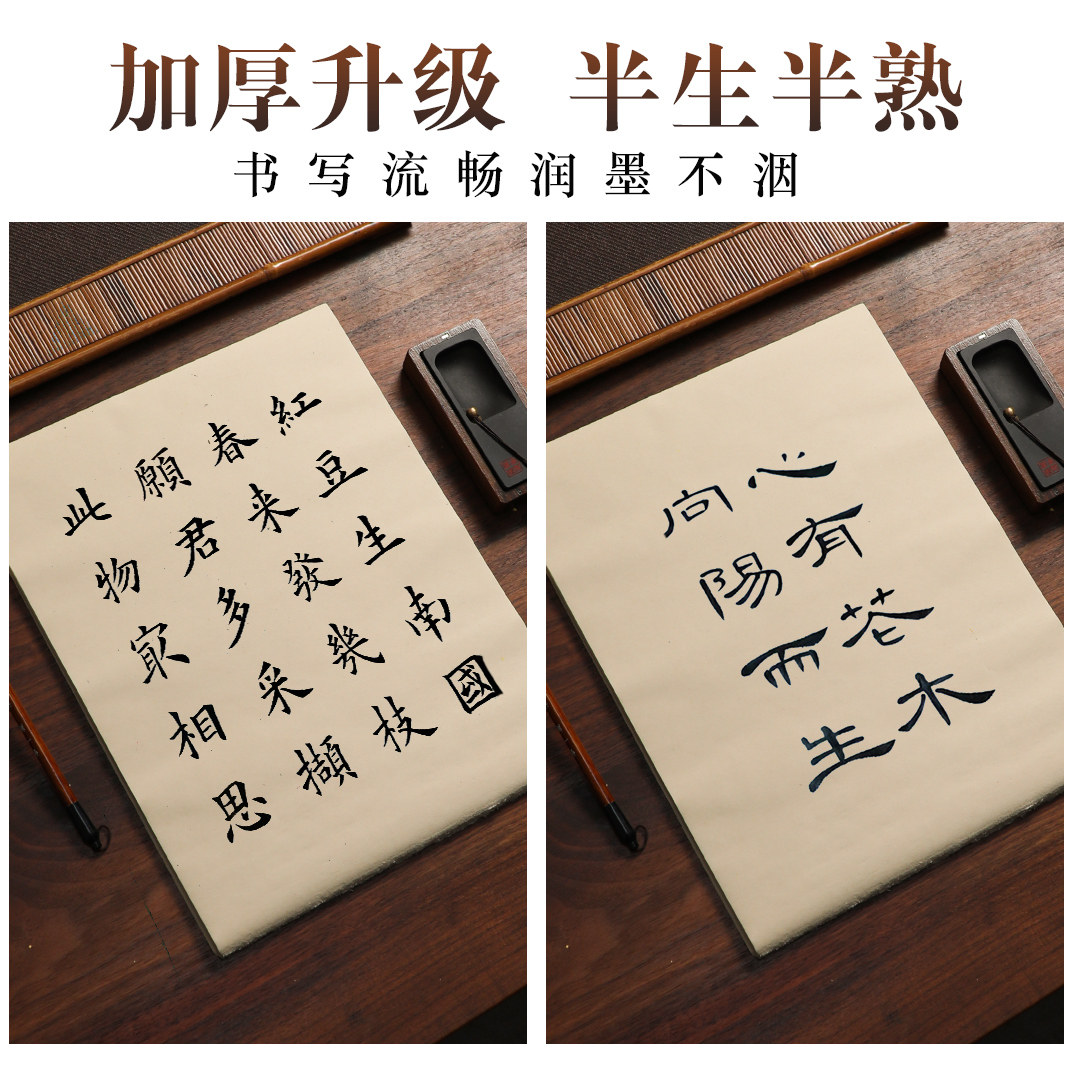 加厚升级 半生半熟
书写流畅润墨不洇
紅豆生南國
春来發幾枝
願君多采擷
此物冣相思
心有花木
向陽而生